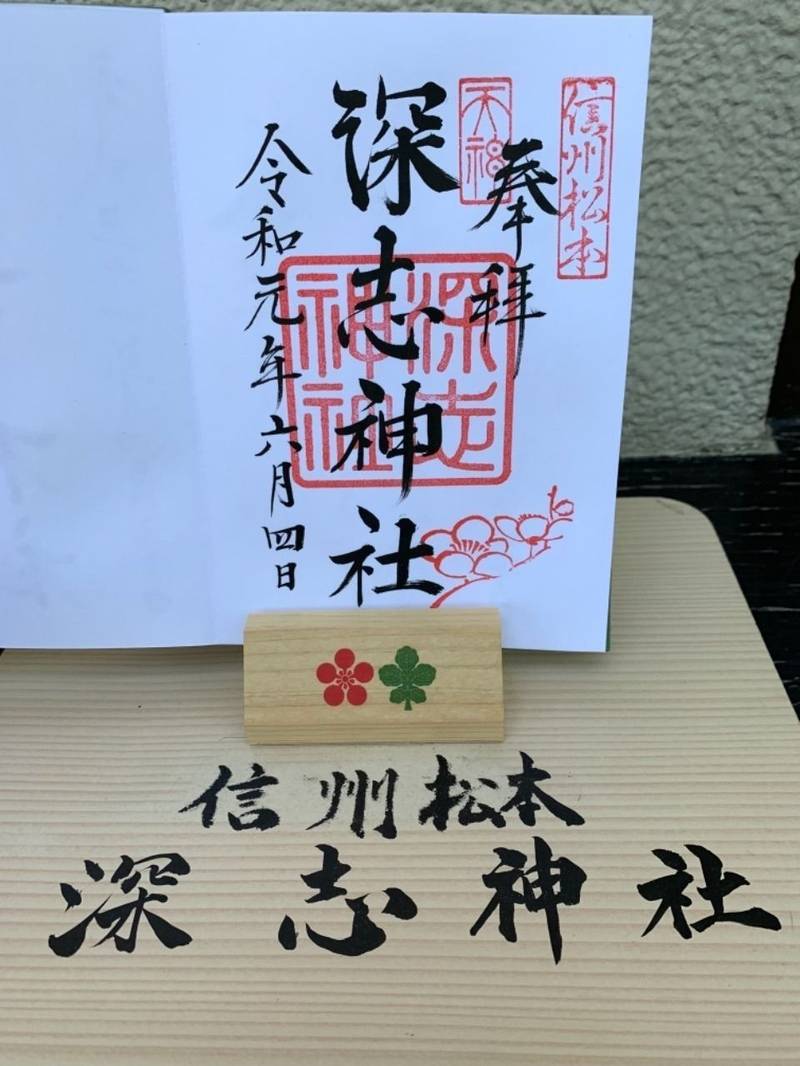 信州松本
天神
奉拝
深志神社
深志神社
令和元年六月四日
信州松本
深志神社